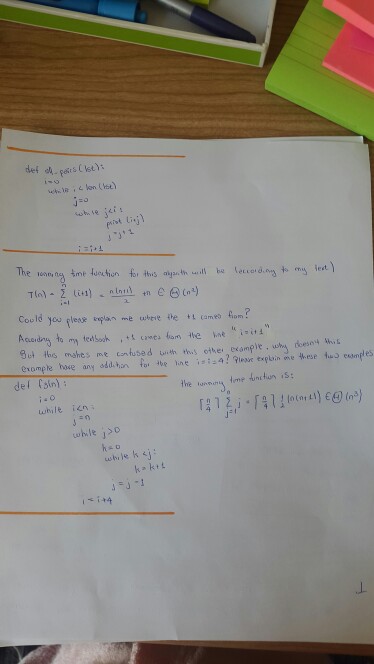 def all_pairs (lst):
i=0
while i < len (lst)
j=0
while j<i:
print (i+j)
j=j+1
i = i+1
The running time function for this algorith will be (according to my text)
T(n) = n Σ i=1 (i+1) = n(n+1) / 2 + n ∈ Θ (n²)
Could you please explain me where the +1 comes from?
According to my textbook , +1 comes from the line "i=i+1"
But this makes me confused with this other example, why doesn't this
example have any addition for the line i=i+4? Please explain me these two examples
def f3(n):
i=0
while i<n:
j=n
while j>0
k=0
while k<j:
k=k+1
j=j-1
i=i+4
the running time function is:
⌈n/4⌉ n Σ j=1 j = ⌈n/4⌉ 1/2 (n(n+1)) ∈ Θ (n³)
1